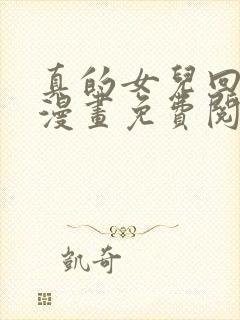 真的女兒回
漫畫免費閱
凱奇